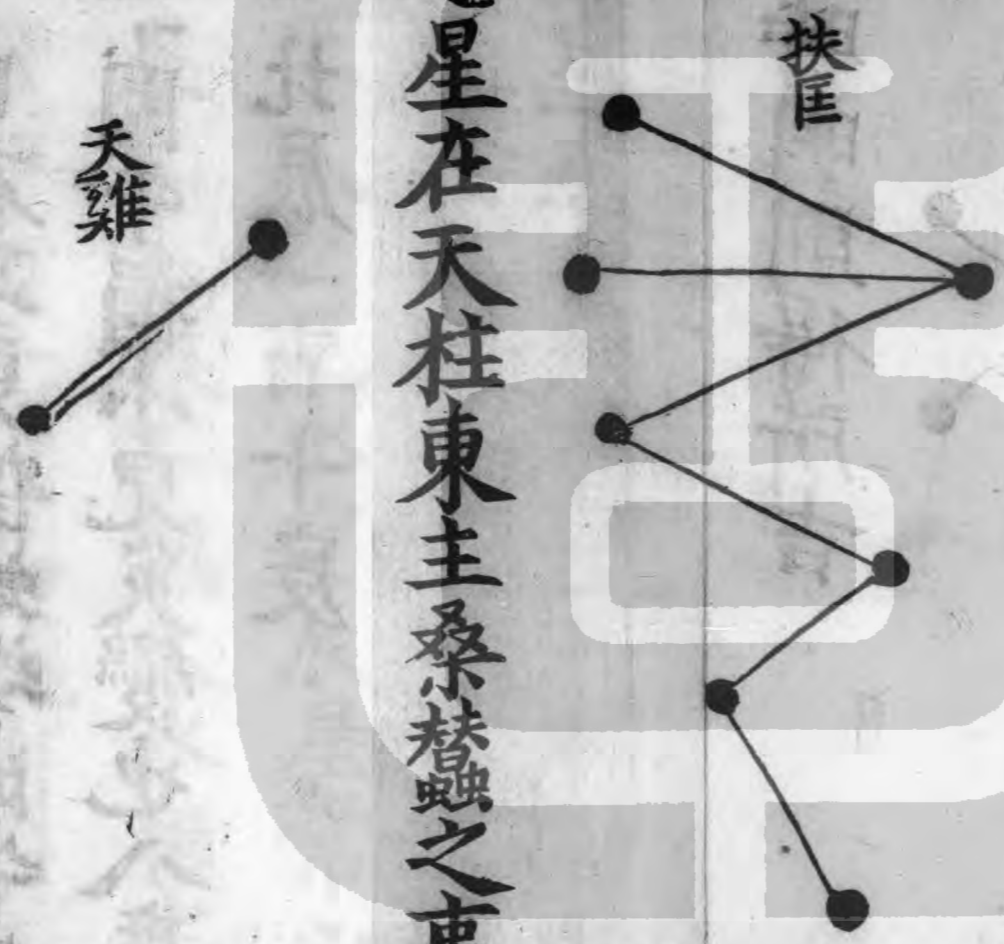 扶匡
星在天柱東主桑蠶之
天雞